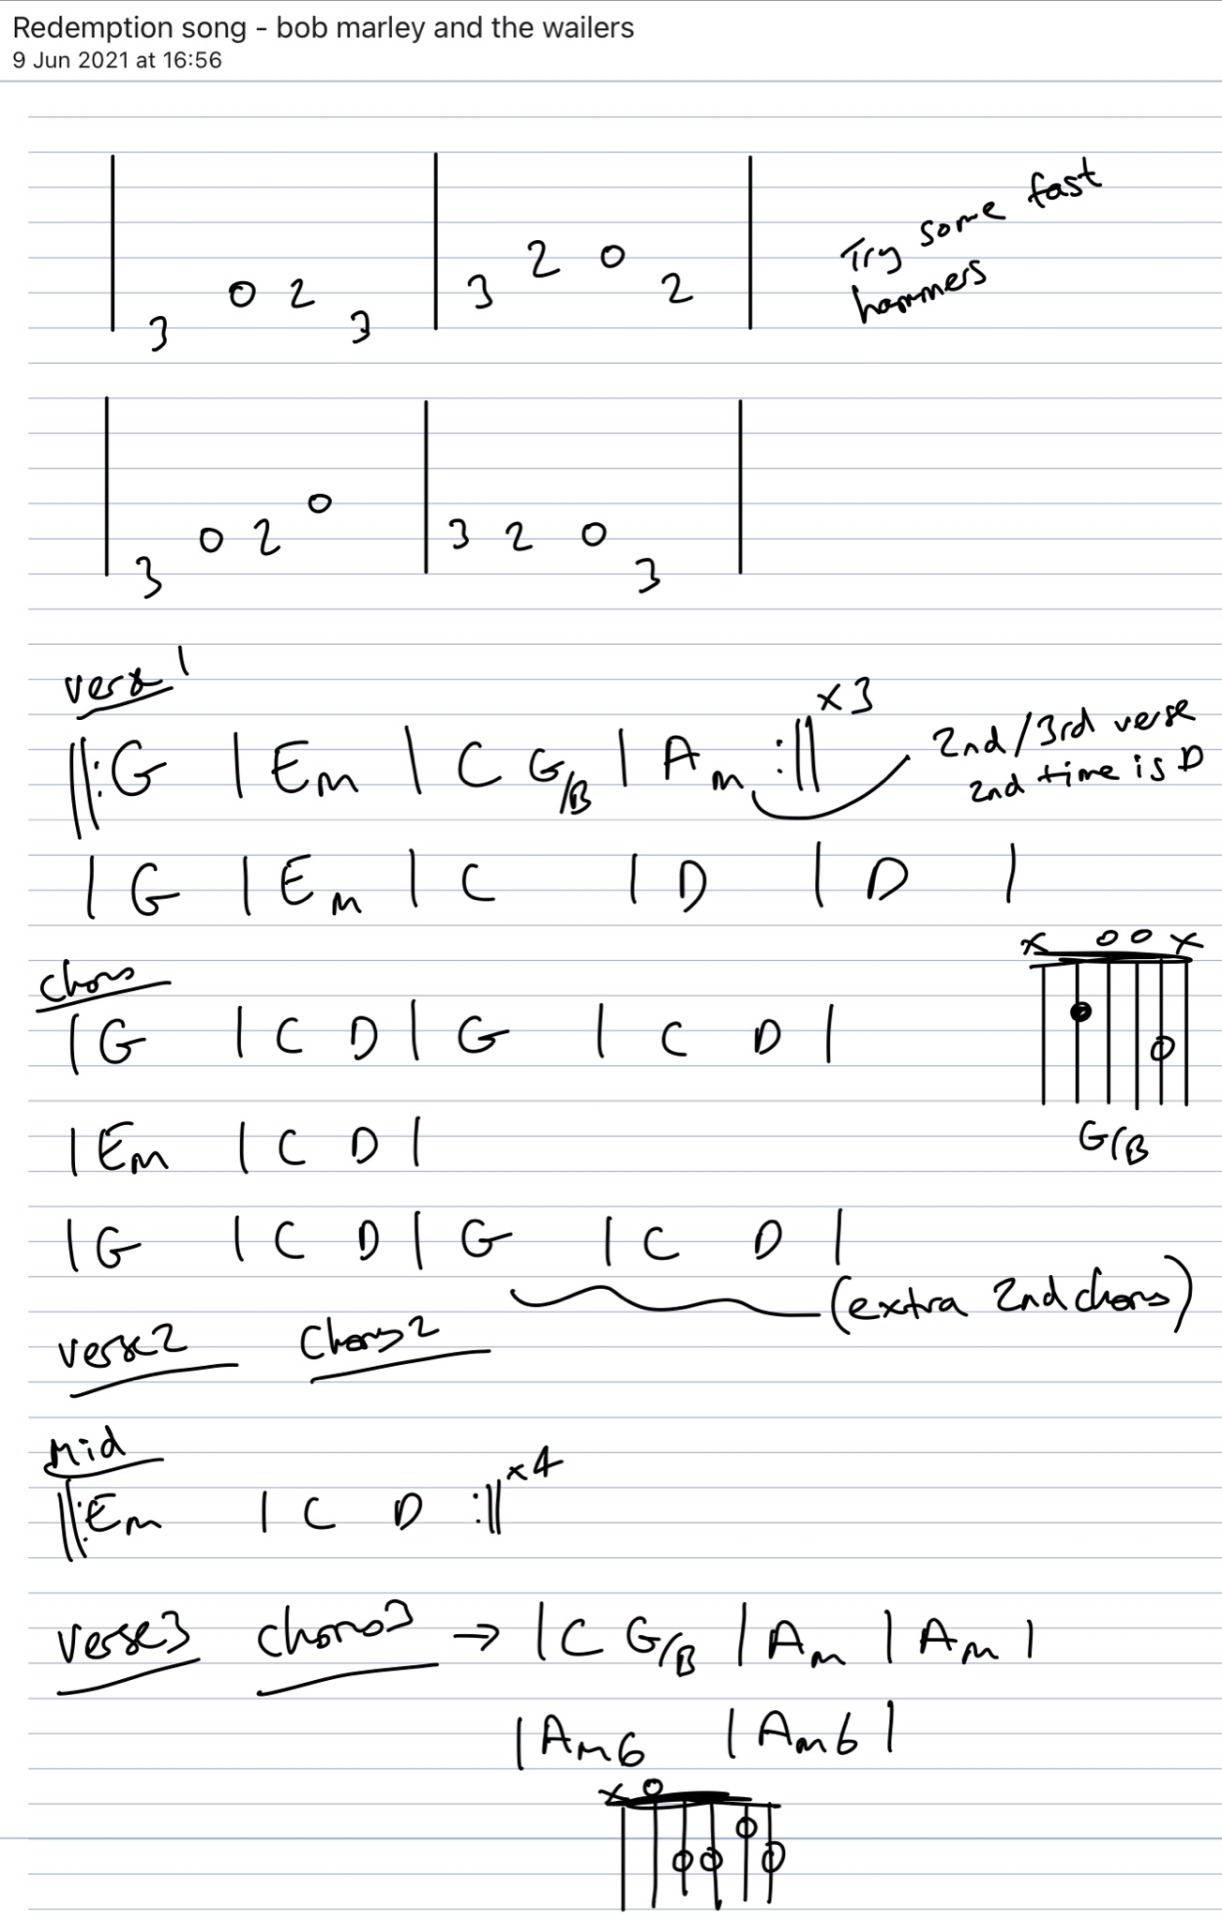 Redemption song - bob marley and the wailers
9 Jun 2021 at 16:56
| 3 0 2 3 | 3 2 0 2 |
Try some fast
hammers
| 3 0 2 0 | 3 2 0 3 |
verse 1
||: G | Em | C G/B | Am :|| x3
2nd/3rd verse
2nd time is D
| G | Em | C | D | D |
chorus
| G | C D | G | C D |
x o o x
G/B
| Em | C D |
| G | C D | G | C D |
(extra 2nd chorus)
verse 2 Chorus 2
Mid
||: Em | C D :|| x4
verse 3 chorus 3 → | C G/B | Am | Am |
| Am6 | Am6 |
x o